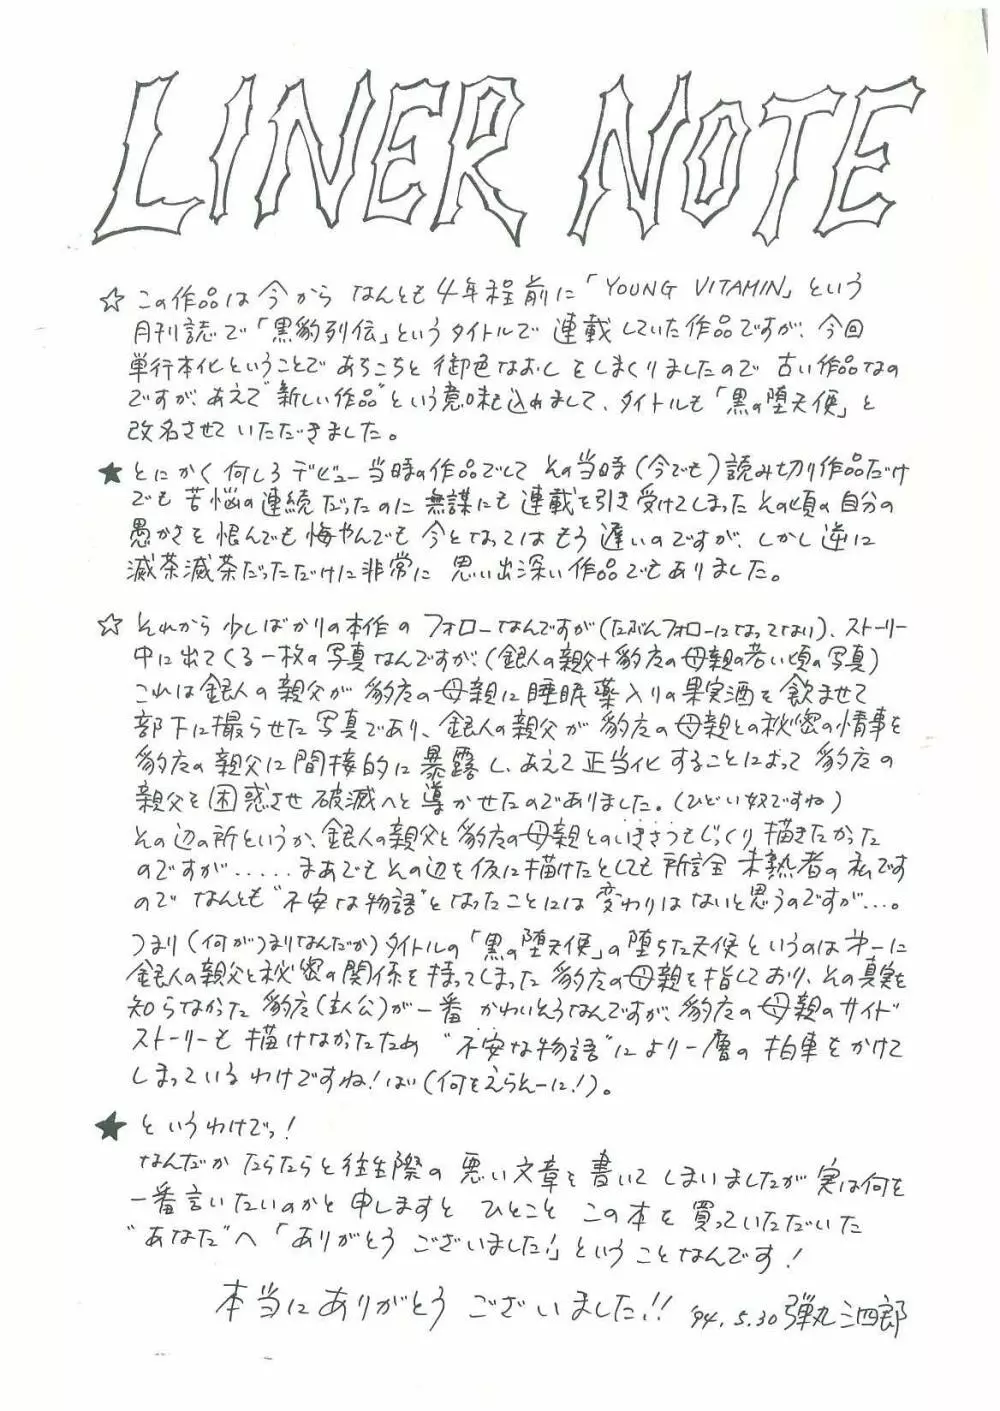 LINER NOTE
☆ この作品は今から なんとも4年程前に「YOUNG VITAMIN」という
月刊誌で「黒豹列伝」というタイトルで 連載していた作品ですが、今回
単行本化ということで あちこちと 御色なおし をしまくりましたので 古い作品なの
ですが、あえて"新しい作品"という意味も込めまして、タイトルも「黒の堕天使」と
改名させて いただきました。
★ とにかく何しろ デビュー当時の作品でして その当時(今でも)読み切り作品だけ
でも 苦悩の連続だったのに 無謀にも 連載を引き受けてしまった その頃の自分の
愚かさを 恨んでも 悔やんでも 今となっては もう 遅いのですが、しかし 逆に
滅茶滅茶だっただけに 非常に 思い出深い作品でもありました。
☆ それから 少しばかりの本作の フォローなんですが(たぶんフォローになってない)、ストーリー
中に出てくる一枚の写真なんですが、(銀人の親父+豹彦の母親の若い頃の写真)
これは銀人の親父が 豹彦の母親に 睡眠薬入りの果実酒を 飲ませて
部下に撮らせた 写真であり、銀人の親父が 豹彦の母親との秘密の情事を
豹彦の親父に 間接的に 暴露し、あえて 正当化することによって 豹彦の
親父を 困惑させ 破滅へと導かせたのでありました。(ひどい奴ですね)
その辺の所というか、銀人の親父と豹彦の母親とのいきさつもじっくり 描きたかった
のですが……まあでもその辺を仮に描けたとしても 所詮 未熟者の私です
ので なんとも"不安な物語"となったことには 変わりはないと思うのですが…。
つまり(何がつまりなんだか)タイトルの「黒の堕天使」の堕ちた天使というのは 第一に
銀人の親父と秘密の関係を持ってしまった 豹彦の母親を指しており、その真実を
知らなかった 豹彦(主人公)が一番 かわいそうなんですが、豹彦の母親のサイド
ストーリーも 描けなかったため "不安な物語"により一層の 拍車をかけて
しまっているわけですね!はい(何をえらそーに!)。
★ というわけでっ!
なんだか だらだらと往生際の 悪い文章を 書いてしまいましたが 実は何を
一番言いたいのかと 申しますと ひとこと この本を 買っていただいた
"あなた"へ「ありがとう ございました!」という ことなんです!
本当にありがとう ございました!! '94.5.30 弾丸三四郎